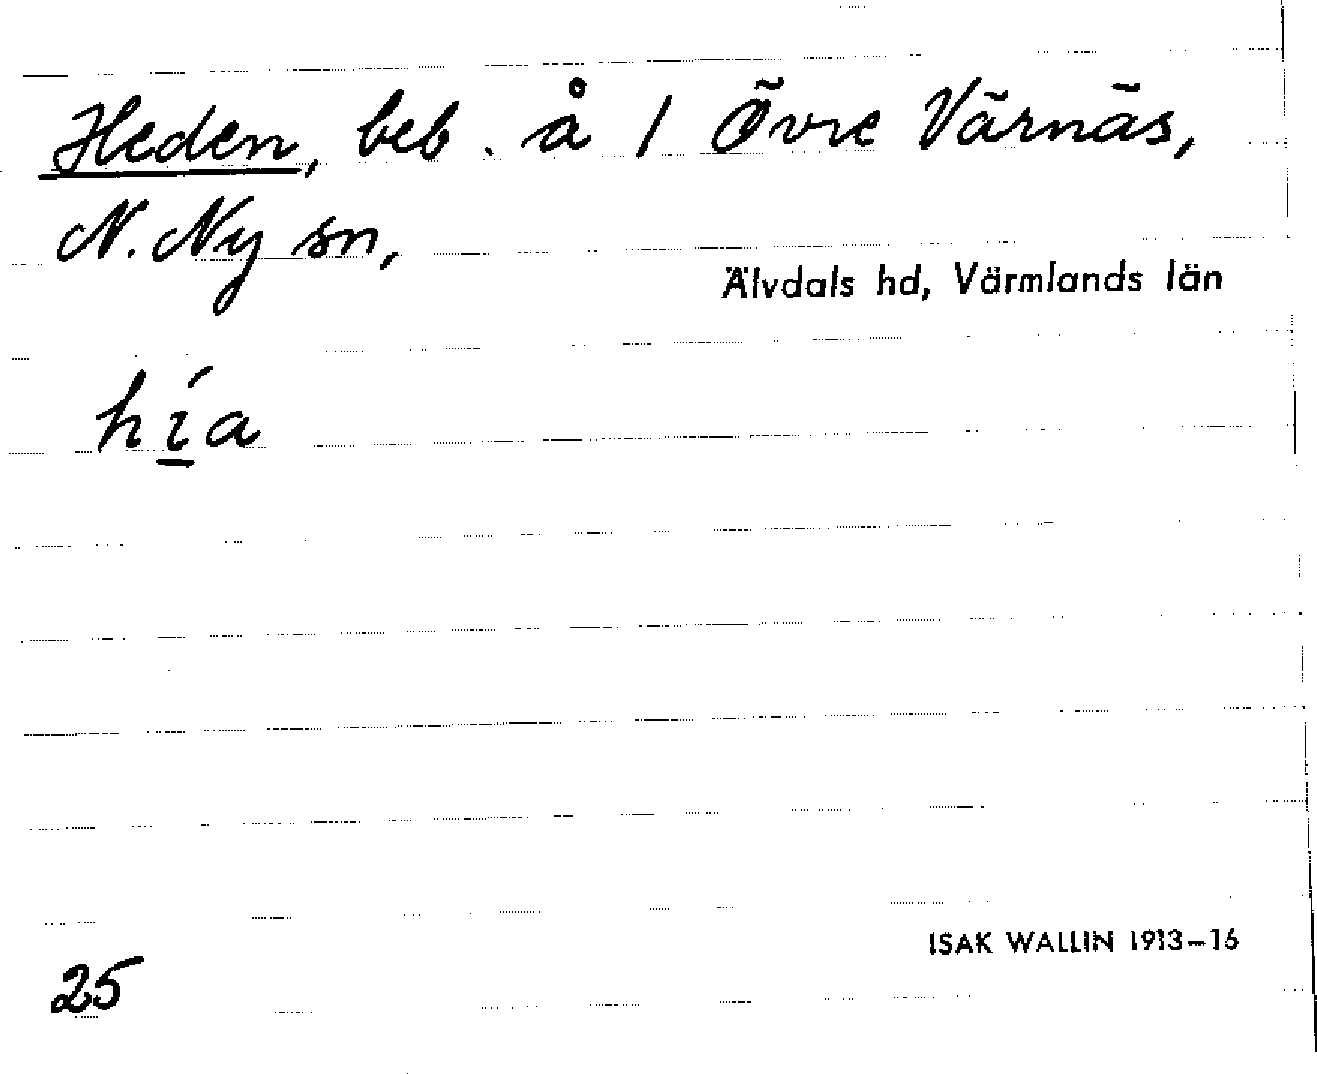 Heden, beb. å 1 Övre Värnäs,
N. Ny sn,
Älvdals hd, Värmlands län
hí̲a
ISAK WALLIN 1913–16
25